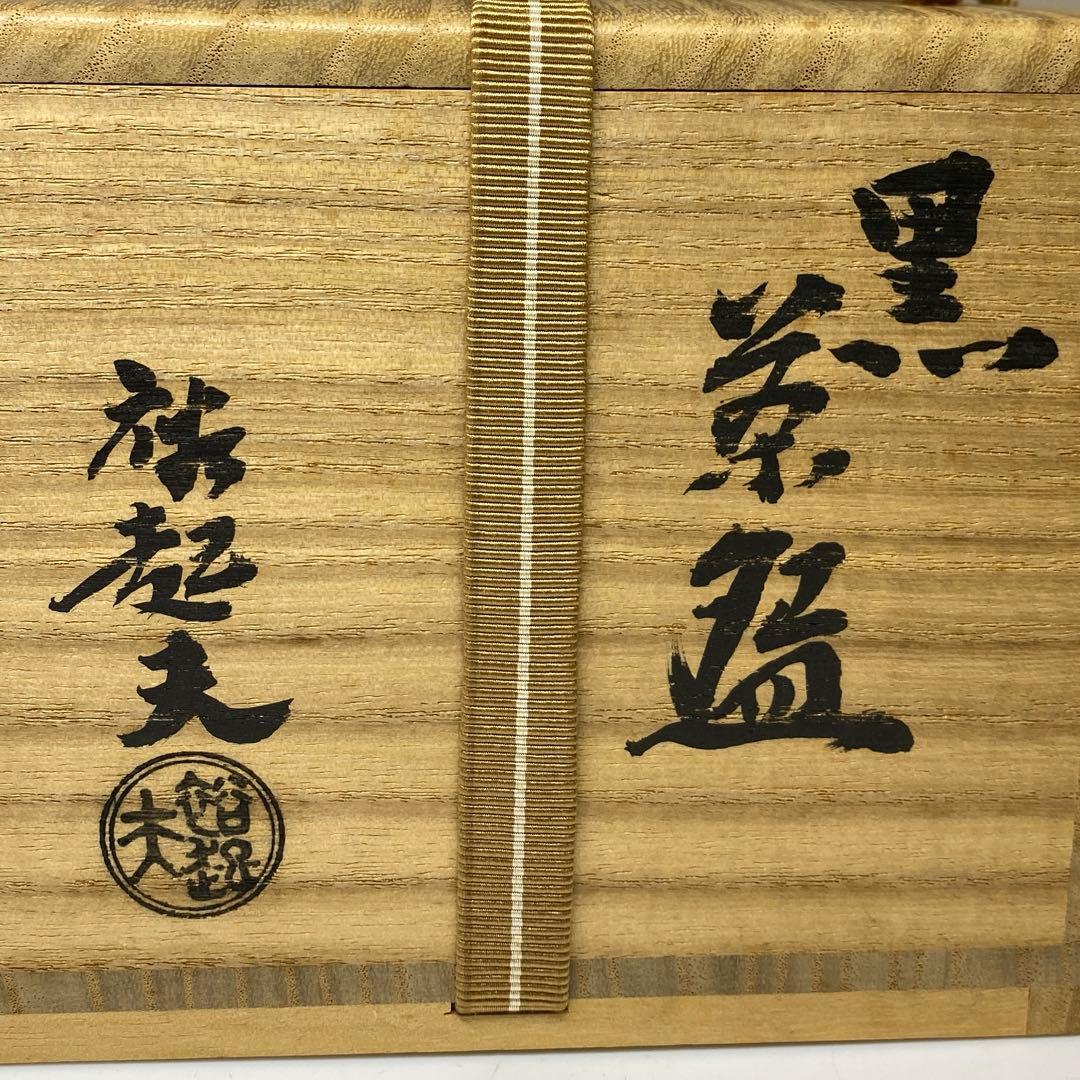 黒茶盌
裕起夫
裕起夫